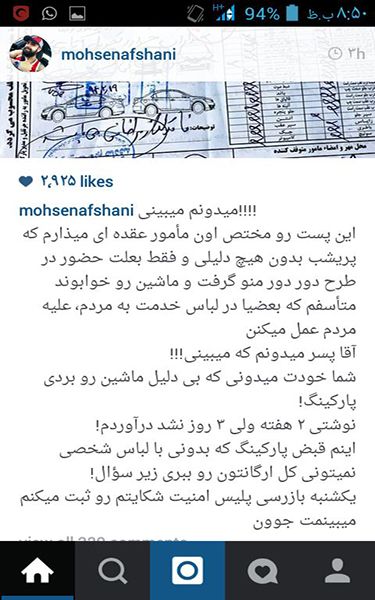 94% ۸:۵۰ ب.ظ
mohsenafshani
۳h
توضیحات:
محل مهر و امضاء مامور متوقف کننده
۲,۹۲۵ likes
mohsenafshani میدونم میبینی!!!!
این پست رو مختص اون مأمور عقده ای میذارم که
پریشب بدون هیچ دلیلی و فقط بعلت حضور در
طرح دور دور منو گرفت و ماشین رو خوابوند
متأسفم که بعضیا در لباس خدمت به مردم، علیه
مردم عمل میکنن
آقا پسر میدونم که میبینی!!!
شما خودت میدونی که بی دلیل ماشین رو بردی
پارکینگ!
نوشتی ۲ هفته ولی ۳ روز نشد درآوردم!
اینم قبض پارکینگ که بدونی با لباس شخصی
نمیتونی کل ارگانتون رو ببری زیر سؤال!
یکشنبه بازرسی پلیس امنیت شکایتم رو ثبت میکنم
میبینمت جوون